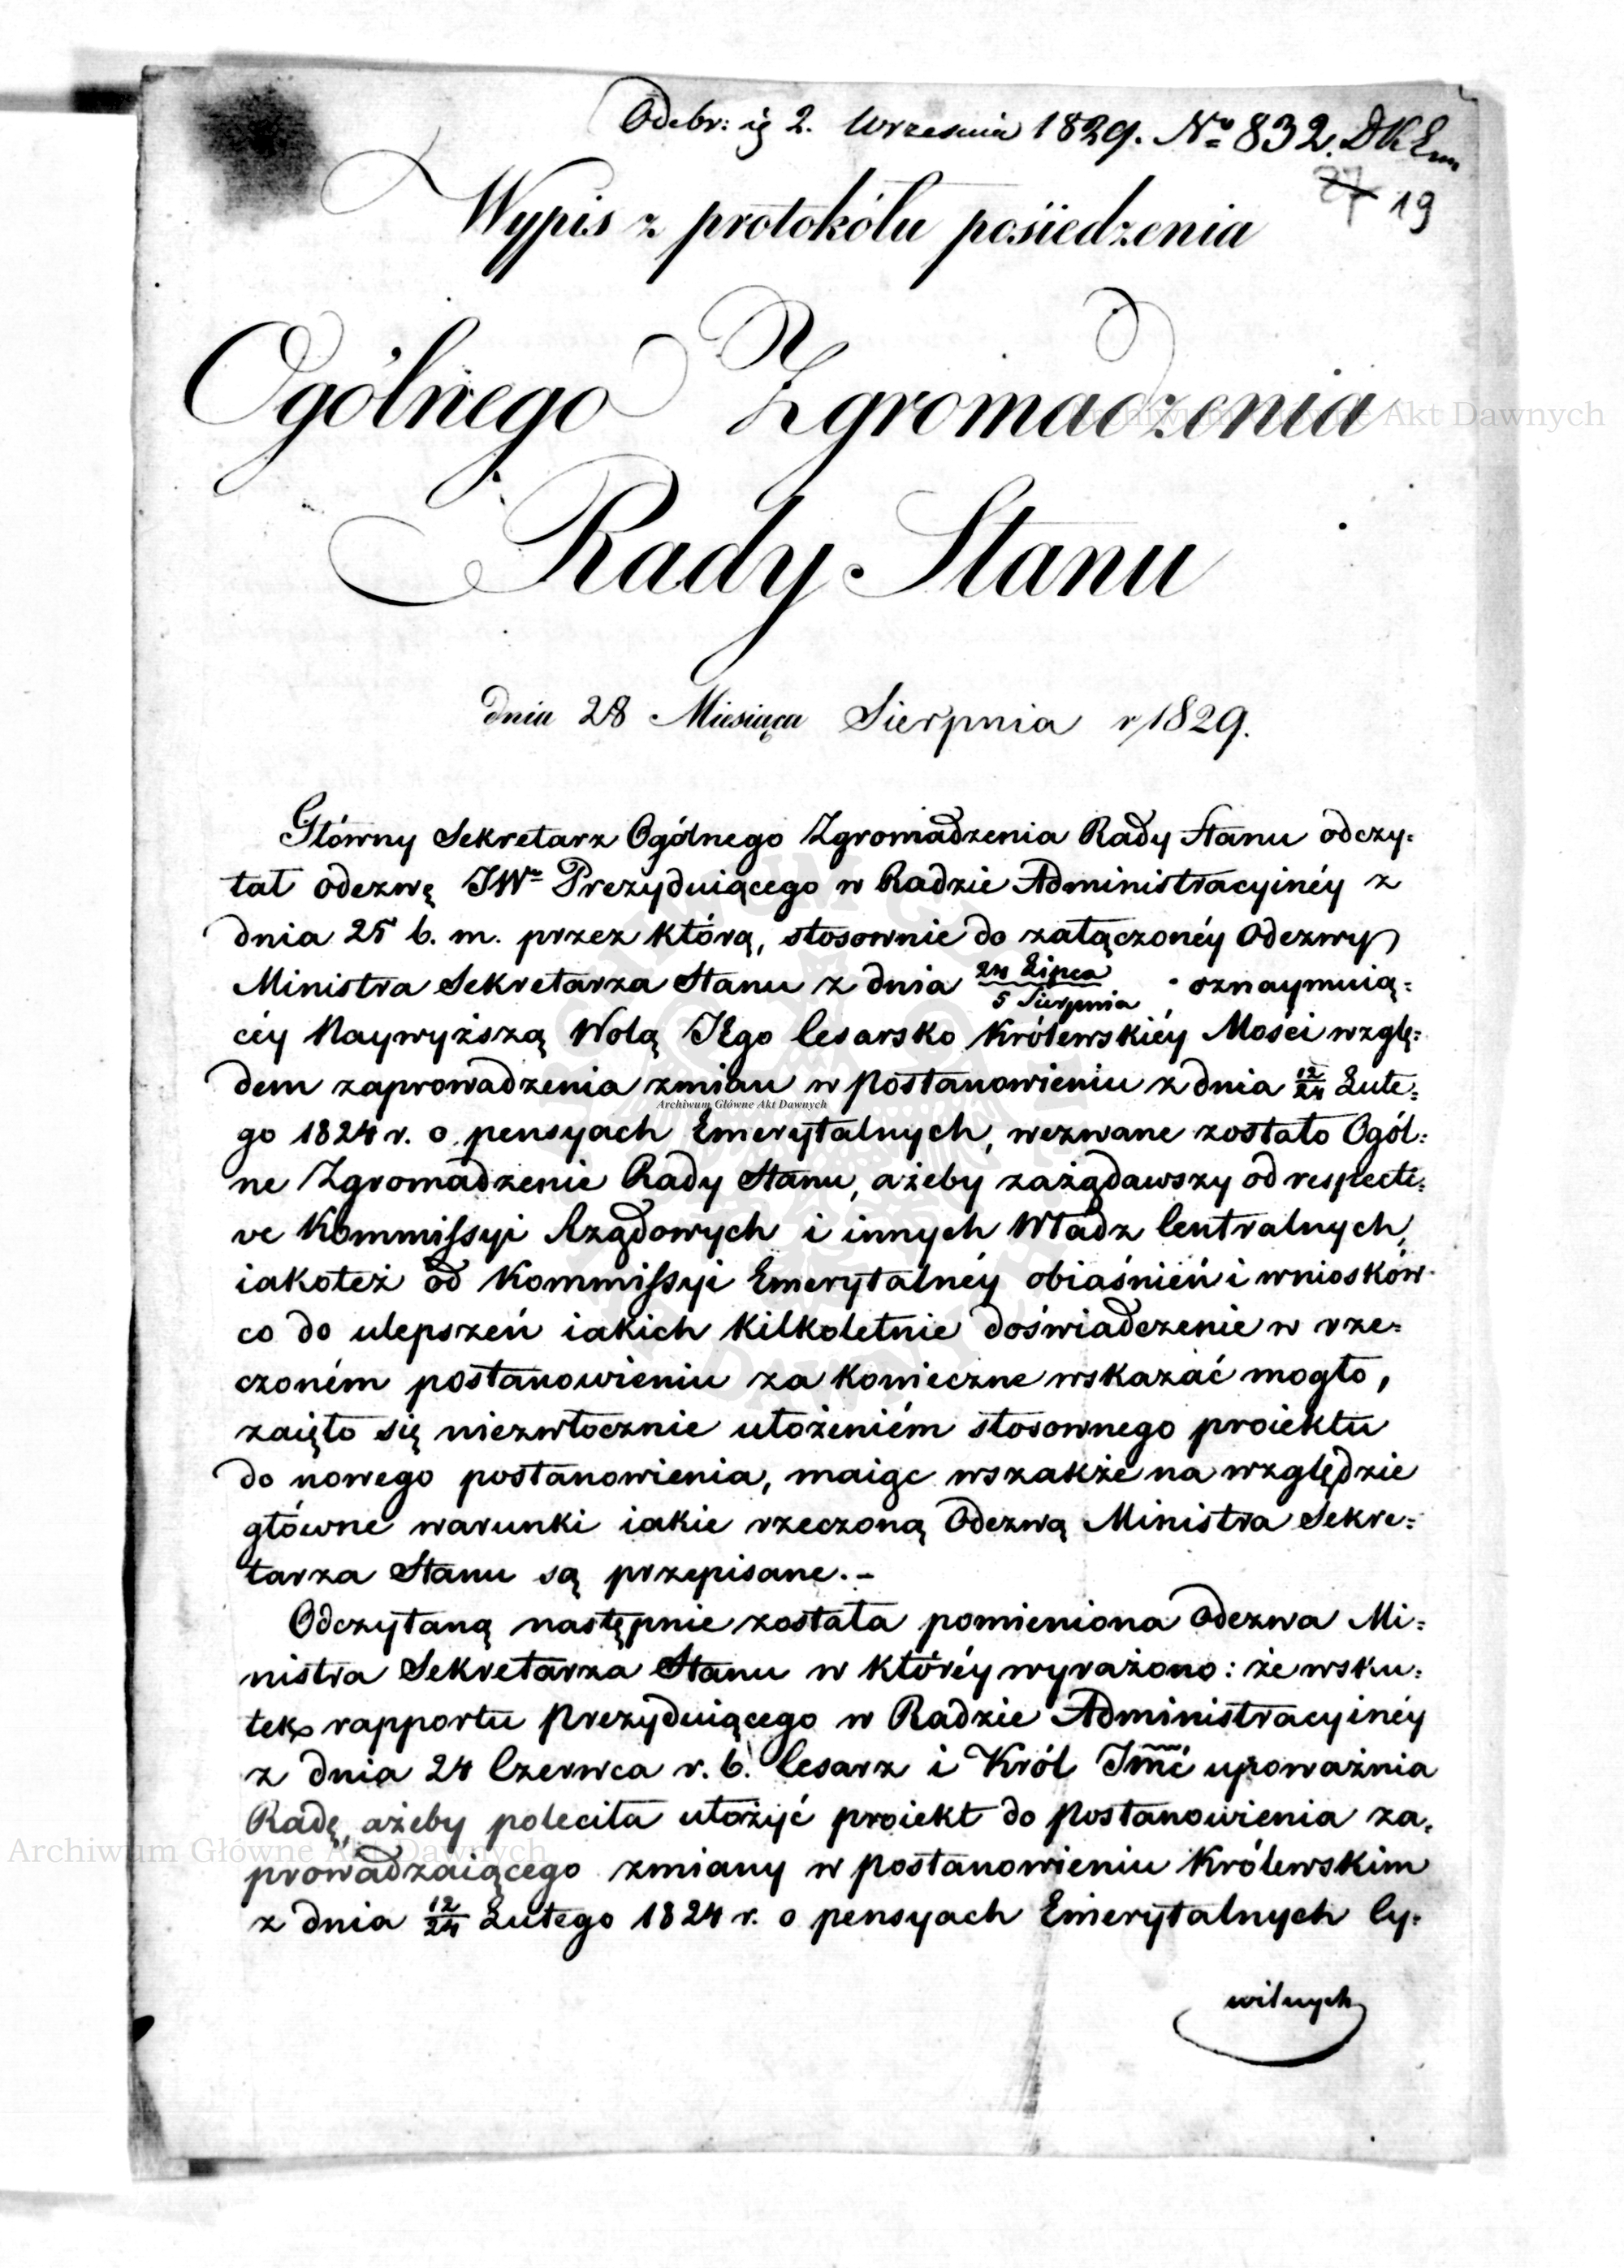 Odebr: ię 2. Września 1829. No 832. DKEm
27 19
Wypis z protokólu posiedzenia
Ogólnego Zgromadzenia
Rady Stanu
dnia 28 Miesiąca Sierpnia r/1829.
Główny Sekretarz Ogólnego Zgromadzenia Rady Stanu odczy:
tał odezwę JWo Prezyduiącego w Radzie Administracyinéy z
dnia 25 b. m. przez którą, stosownie do załączonéy Odezwy
Ministra Sekretarza Stanu z dnia 24 Lipca/5 Sierpnia oznaymuią:
céy Naywyższą Wolą JEgo Cesarsko Królewskiéy Mości wzglę:
dem zaprowadzenia zmian w Postanowieniu z dnia 12/24 Lute:
go 1824 r. o pensyach Emerytalnych, wezwane zostało Ogól:
ne Zgromadzenie Rady Stanu, ażeby zażądawszy od respecti:
ve Kommissyi Rządowych i innych Władz Centralnych,
iakoteż od Kommissyi Emerytalnéy obiaśnień i wniosków
co do ulepszeń iakich kilkoletnie doświadczenie w rze:
czoném postanowieniu za konieczne wskazać mogło,
zaięło się niezwłocznie ułożeniém stosownego proiektu
do nowego postanowienia, maiąc wszakże na względzie
główne warunki iakie rzeczoną Odezwą Ministra Sekre:
tarza Stanu są przepisane.-
Odczytaną następnie została pomieniona Odezwa Mi:
nistra Sekretarza Stanu w któréy wyrażono: że wsku:
tek rapportu Prezyduiącego w Radzie Administracyinéy
z dnia 24 Czerwca r. b. Cesarz i Król Jmć upoważnia
Radę, ażeby poleciła ułożyć proiekt do Postanowienia za:
prowadzaiącego zmiany w Postanowieniu Królewskim
z dnia 12/24 Lutego 1824 r. o pensyach Emerytalnych Cy:
wilnych
Archiwum Główne Akt Dawnych
Archiwum Główne Akt Dawnych
Archiwum Główne Akt Dawnych